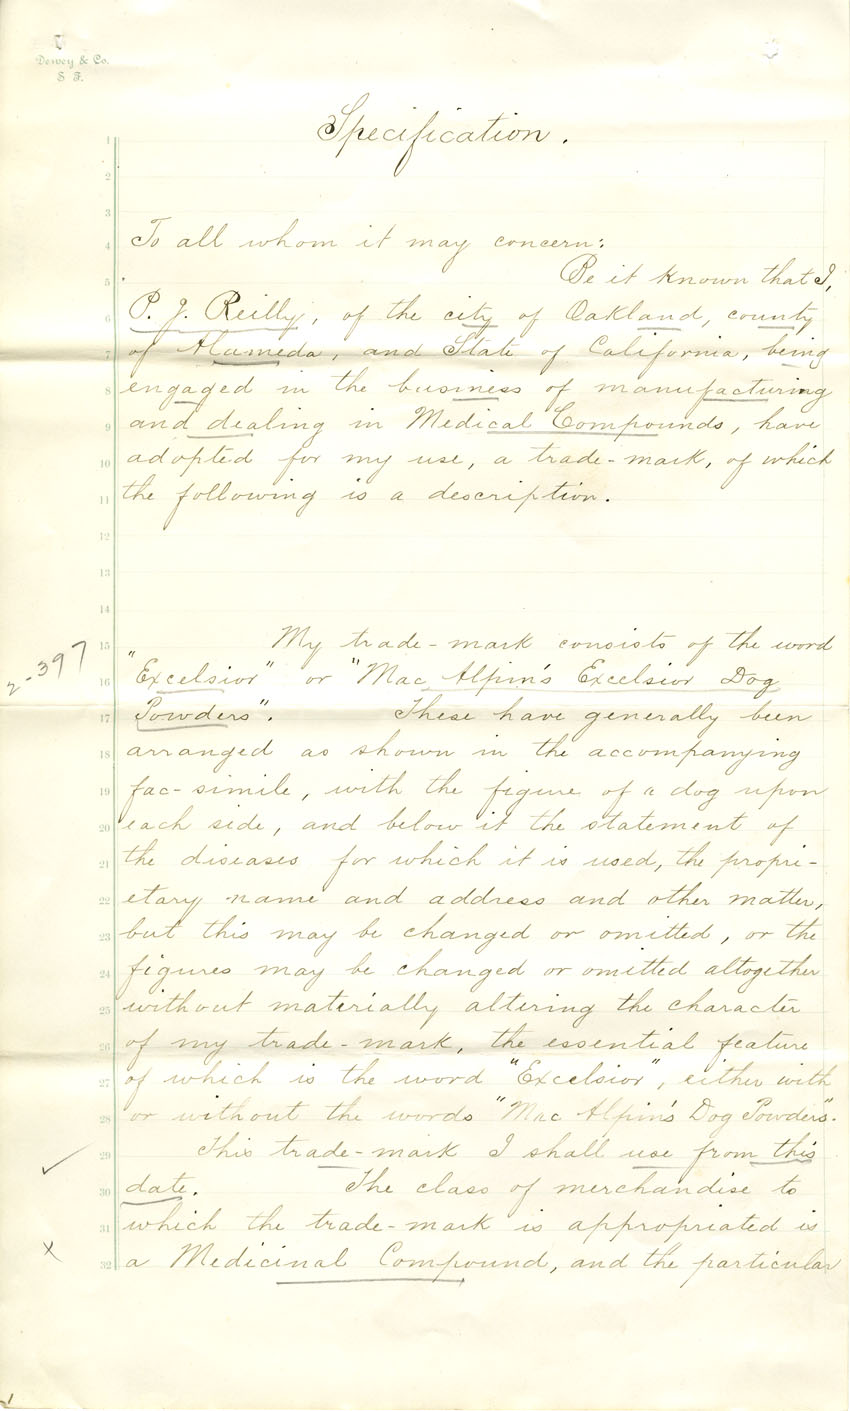 Dewey & Co.
S F.
Specification.
1
2
3
4 To all whom it may concern:
5 Be it known that I,
6 P. J. Reilly, of the city of Oakland, county
7 of Alameda, and State of California, being
8 engaged in the business of manufacturing
9 and dealing in Medical Compounds, have
10 adopted for my use, a trade-mark, of which
11 the following is a description.
12
13
14
15 My trade-mark consists of the word
2-397
16 "Excelsior" or "Mac Alpin's Excelsior Dog
17 Powders". These have generally been
18 arranged as shown in the accompanying
19 fac-simile, with the figure of a dog upon
20 each side, and below it the statement of
21 the diseases for which it is used, the propri-
22 etary name and address and other matter,
23 but this may be changed or omitted, or the
24 figures may be changed or omitted altogether
25 without materially altering the character
26 of my trade-mark, the essential feature
27 of which is the word "Excelsior", either with
28 or without the words "Mac Alpin's Dog Powders".
29 This trade-mark I shall use from this
30 date. The class of merchandise to
31 which the trade-mark is appropriated is
x
32 a Medicinal Compound, and the particular